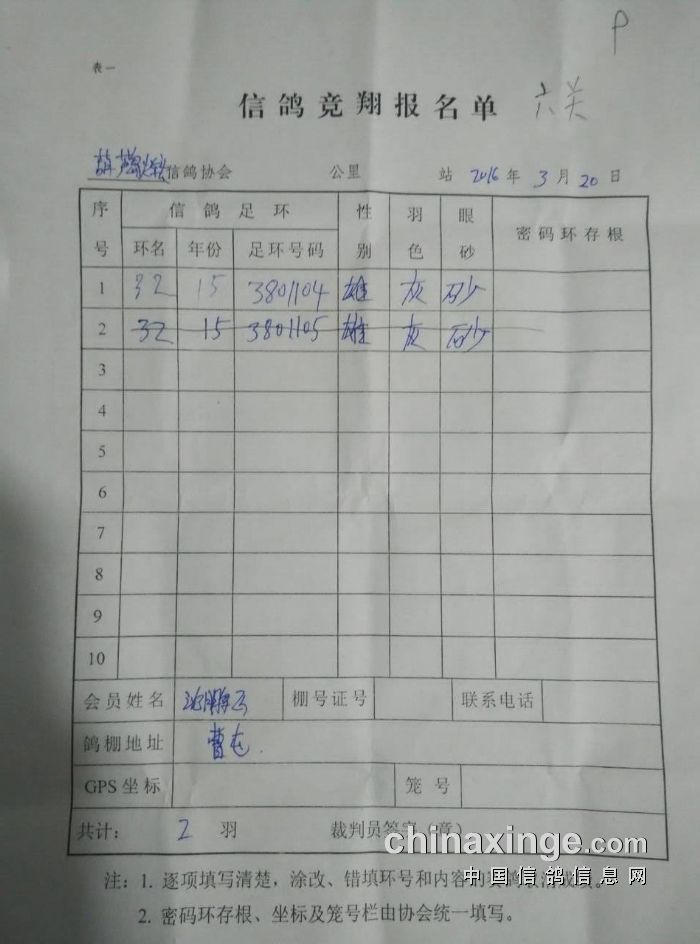 P
表一
信鸽竞翔报名单 六关
葫芦岛 信鸽协会 公里 站 2016 年 3 月 20 日
序号 信鸽足环 性别 羽色 眼砂 密码环存根
环名 年份 足环号码
1 32 15 3801104 雄 灰 砂
2 32 15 3801105 雄 灰 砂
3
4
5
6
7
8
9
10
会员姓名 沈鹏云 棚号证号 联系电话
鸽棚地址 曹屯
GPS坐标 笼号
共计： 2 羽 裁判员签字（章）
chinaxinge.com
注：1. 逐项填写清楚，涂改、错填环号和内容
中国信鸽信息网
2. 密码环存根、坐标及笼号栏由协会统一填写。